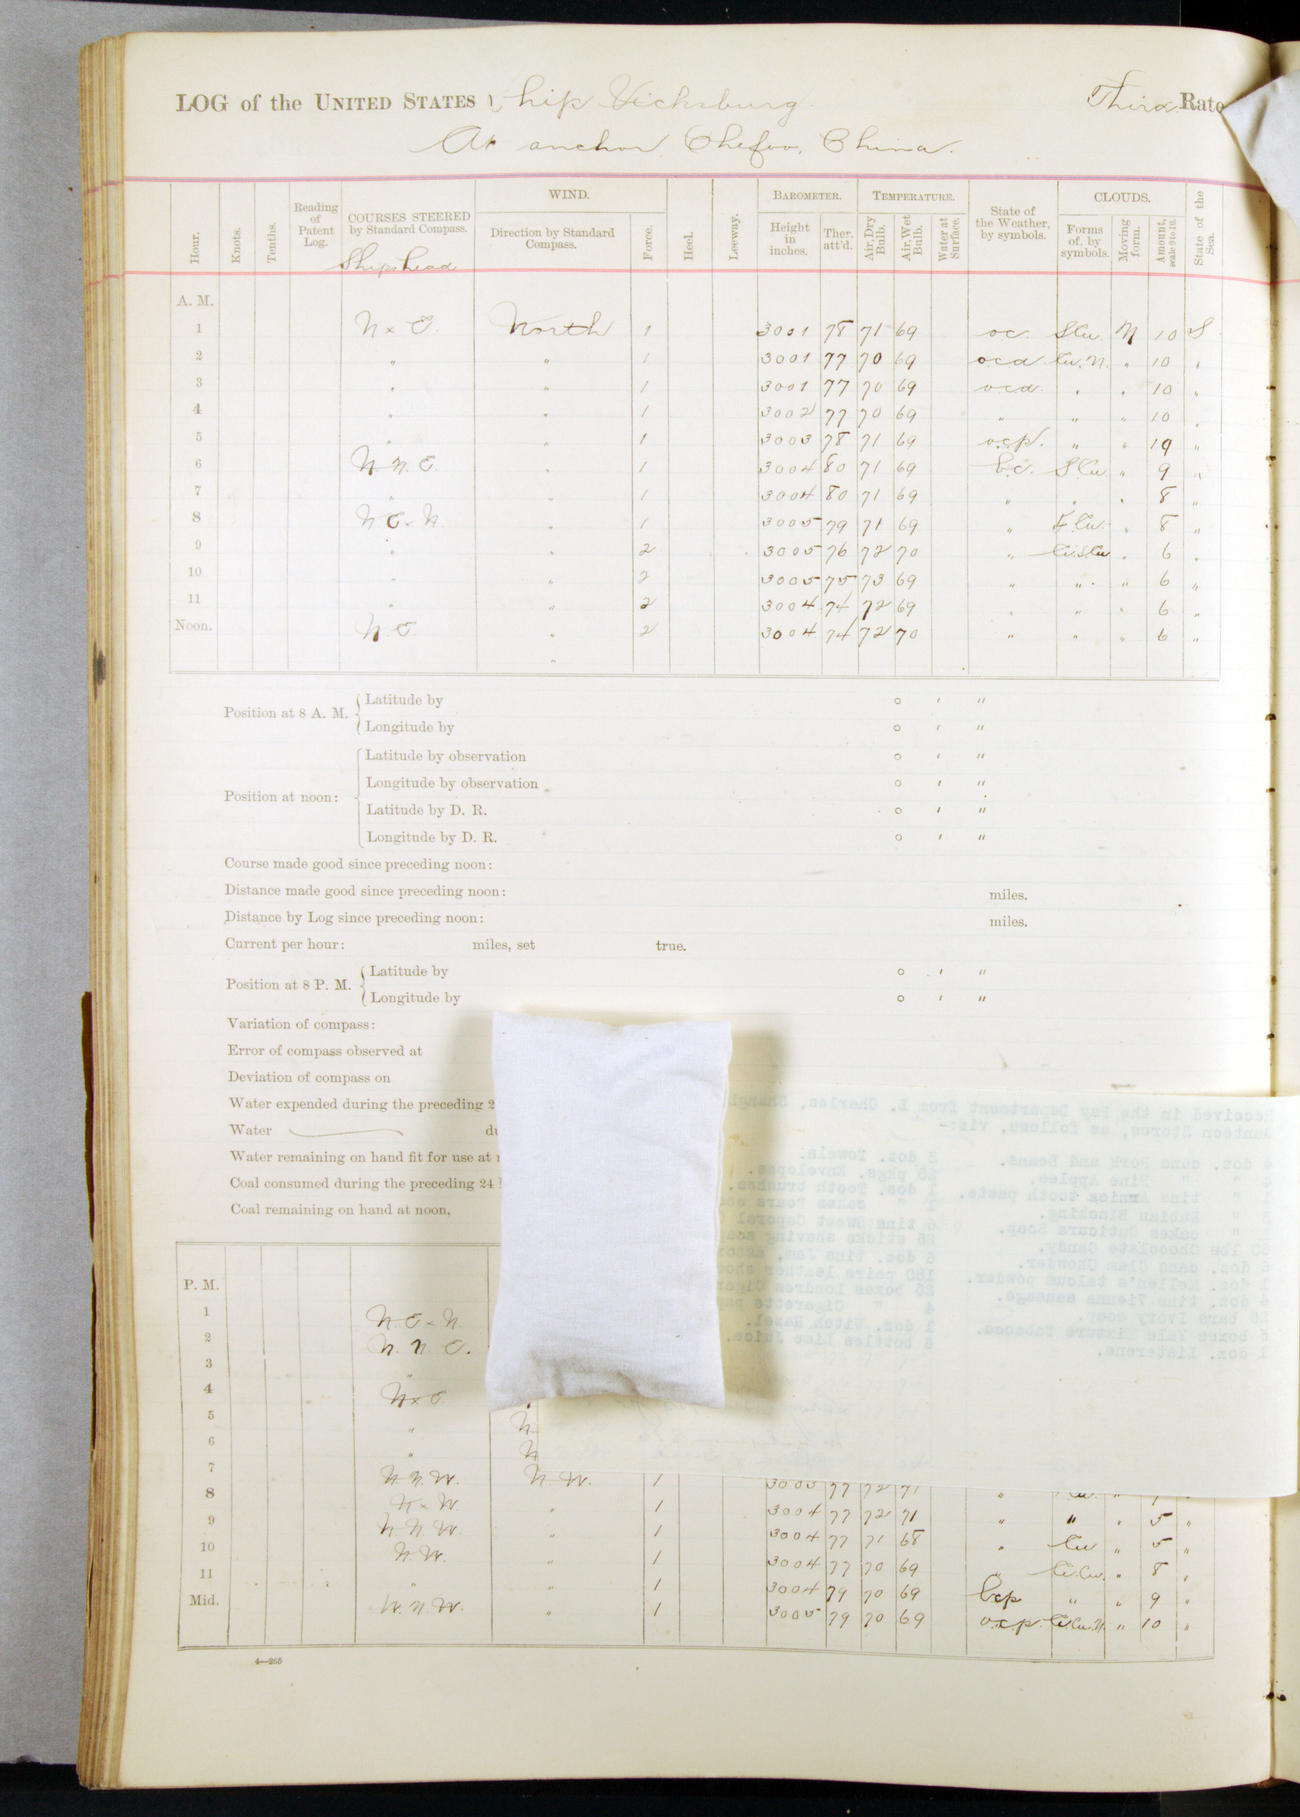 LOG of the UNITED STATES Ship Vicksburg. Third Rate
At anchor Chefoo, China.
Hour. Knots. Tenths. Reading of Patent Log. COURSES STEERED by Standard Compass. WIND. Direction by Standard Compass. Force. Heel. Leeway. BAROMETER. Height in inches. Ther. att'd. TEMPERATURE. Air, Dry Bulb. Air, Wet Bulb. Water at Surface. State of the Weather, by symbols. CLOUDS. Forms of, by symbols. Moving form. Amount, scale 0 to 10. State of the Sea.
Ships head
A. M.
1 N x E. North 1 3001 78 71 69 oc. S.Cu. N 10 S
2 " " 1 3001 77 70 69 ocd Cu.N. " 10 "
3 " " 1 3001 77 70 69 ocd. " " 10 "
4 " " 1 3002 77 70 69 " " " 10 "
5 " " 1 3003 78 71 69 ocp. " " 10 "
6 N.N.E. " 1 3004 80 71 69 bc. S.Cu. " 9 "
7 " " 1 3004 80 71 69 " " " 8 "
8 N E x N " 1 3005 79 71 69 " " 8 "
9 " " 2 3005 76 72 70 " " 6 "
10 " " 2 3005 75 73 69 " " " 6 "
11 " " 2 3004 74 72 69 " " " 6 "
Noon. N.E. " 2 3004 74 72 70 " " " 6 "
"
Position at 8 A. M. Latitude by ° ′ ″
Longitude by ° ′ ″
Position at noon: Latitude by observation ° ′ ″
Longitude by observation ° ′ ″
Latitude by D. R. ° ′ ″
Longitude by D. R. ° ′ ″
Course made good since preceding noon:
Distance made good since preceding noon: miles.
Distance by Log since preceding noon: miles.
Current per hour: miles, set true.
Position at 8 P. M. Latitude by ° ′ ″
Longitude by ° ′ ″
Variation of compass:
Error of compass observed at
Deviation of compass on
Water expended during the preceding 2
Water du
Water remaining on hand fit for use at
Coal consumed during the preceding 24
Coal remaining on hand at noon,
Received in the Pay Department from E. Charles, Shangh
Canteen Stores, as follows, viz:-
doz. cans Pork and Beans.
" " Pine Apples.
" tins Arnica tooth paste.
" Nubian Blacking.
" cakes Cuticura Soap.
lbs Chocolate Candy.
doz. cans Clam Chowder.
doz. Mellen's talcum powder.
doz. tins Vienna sausage.
bars Ivory soap.
boxes Yale Mixture Tobacco.
1 doz. Listerene.
3 doz. Towels.
25 pkgs. Envelopes.
1 doz. Tooth brushes.
" cakes Pears
tins Sweet Caporal
sticks shaving soap
6 doz. tins Jam,
pairs leather
boxes Londres Cigar
4 " Cigarette
1 doz. Witch Hazel.
6 bottles Lime Juice.
P. M.
1 N E x N.
2 N. N. E.
3 "
4 N x E
5 " N
6 " N
7 N. N. W. N. W. 1 3003 77 72 71 " Cu. "
8 N x W. " 1 3004 77 72 71 " " " 5 "
9 N. N. W. " 1 3004 77 71 68 " Cu " 5 "
10 N. W. " 1 3004 77 70 69 " Ci.Cu. " 8 "
11 " " 1 3004 79 70 69 bcp " " 9 "
Mid. W. N. W. " 1 3005 79 70 69 ocp. Ci.Cu.N. " 10 "
4—265